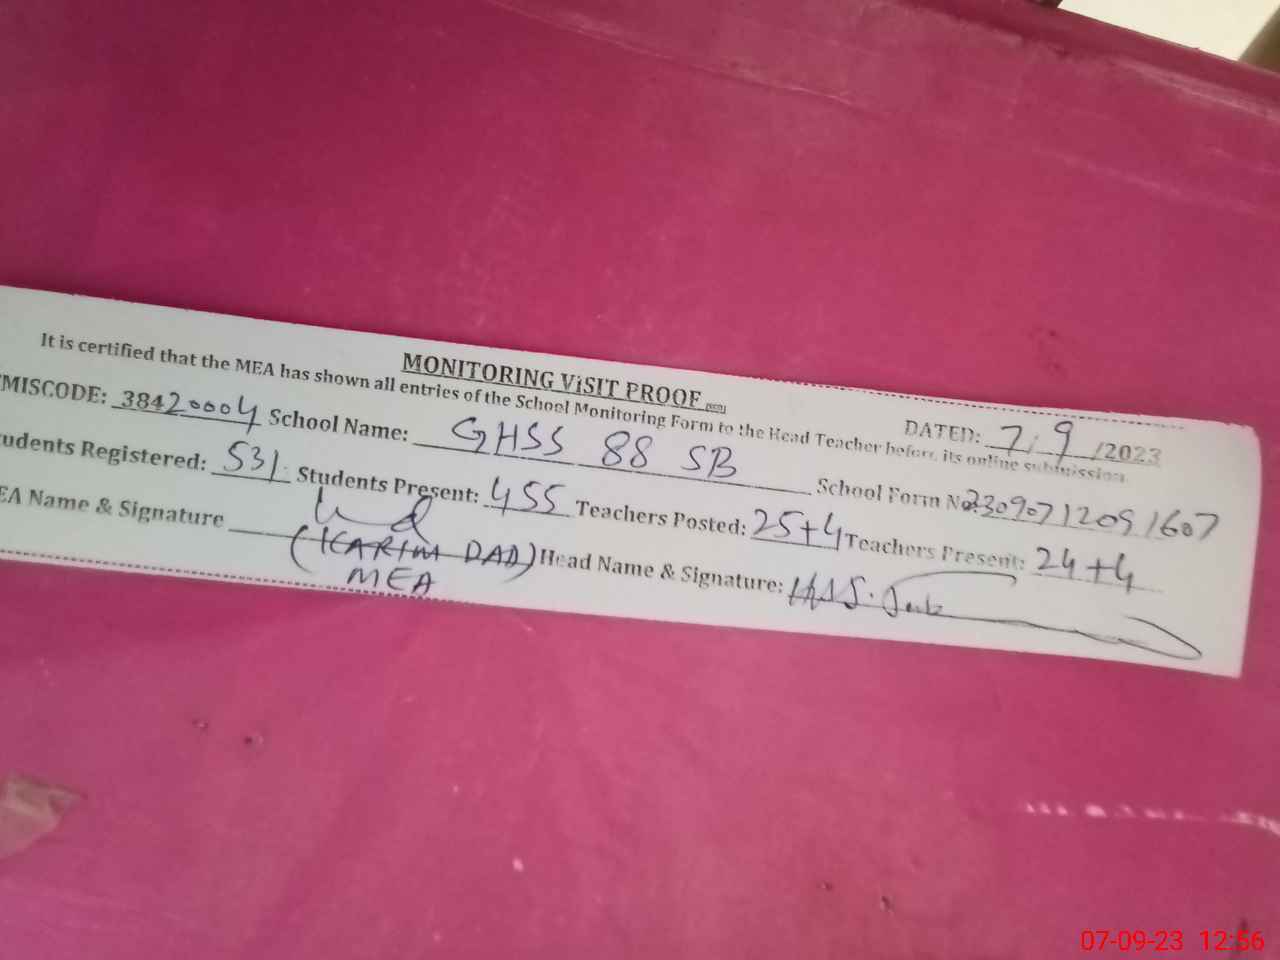 MONITORING ViSIT PROOF
DATED: 7.9/2023
It is certified that the MEA has shown all entries of the School Monitoring Form to the Head Teacher before its online submission.
MISCODE: 38420004 School Name: GHSS 88 SB School Form No. 23090712091607
udents Registered: 531 Students Present: 455 Teachers Posted: 25+4 Teachers Present: 24+4
EA Name & Signature (KARIM DAD) Head Name & Signature:
MEA
07-09-23 12:56